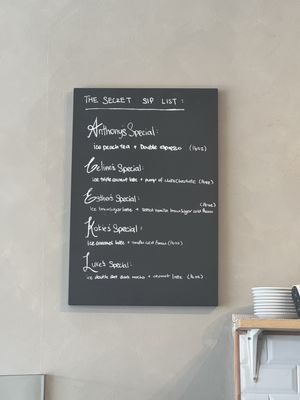 THE SECRET SIP LIST:
Anthony's Special:
ice peach tea + Double espresso (16oz)
Celine's Special:
ice triple coconut latte + pump of white chocolate (16oz)
Esther's Special:
(16oz)
ice brown sugar latte + salted vanilla brown sugar cold foam
Kokie's Special:
ice caramel latte + vanilla cold foam (16oz)
Luke's Special:
ice double shot dark mocha + coconut latte (16oz)